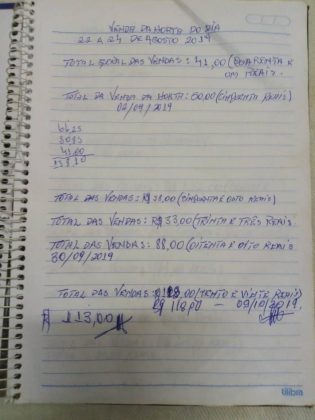 VENDA DA HORTA DO DIA
22 A 24 DE AGOSTO 2019
TOTAL DAS VENDAS: 41,00 (QUARENTA E
UM REAIS.
TOTAL DA VENDA DA HORTA: 50,00 (CINQUENTA REAIS)
02/09/2019
41,00
TOTAL DAS VENDAS: R$ 58,00 (CINQUENTA E OITO REAIS)
TOTAL DAS VENDAS: R$ 33,00 (TRINTA E TRÊS REAIS.
TOTAL DAS VENDAS: 88,00 (OITENTA E OITO REAIS
30/09/2019
TOTAL DAS VENDAS: E VINTE REAIS)
09/10/2019
R$ 113,00
tilibra